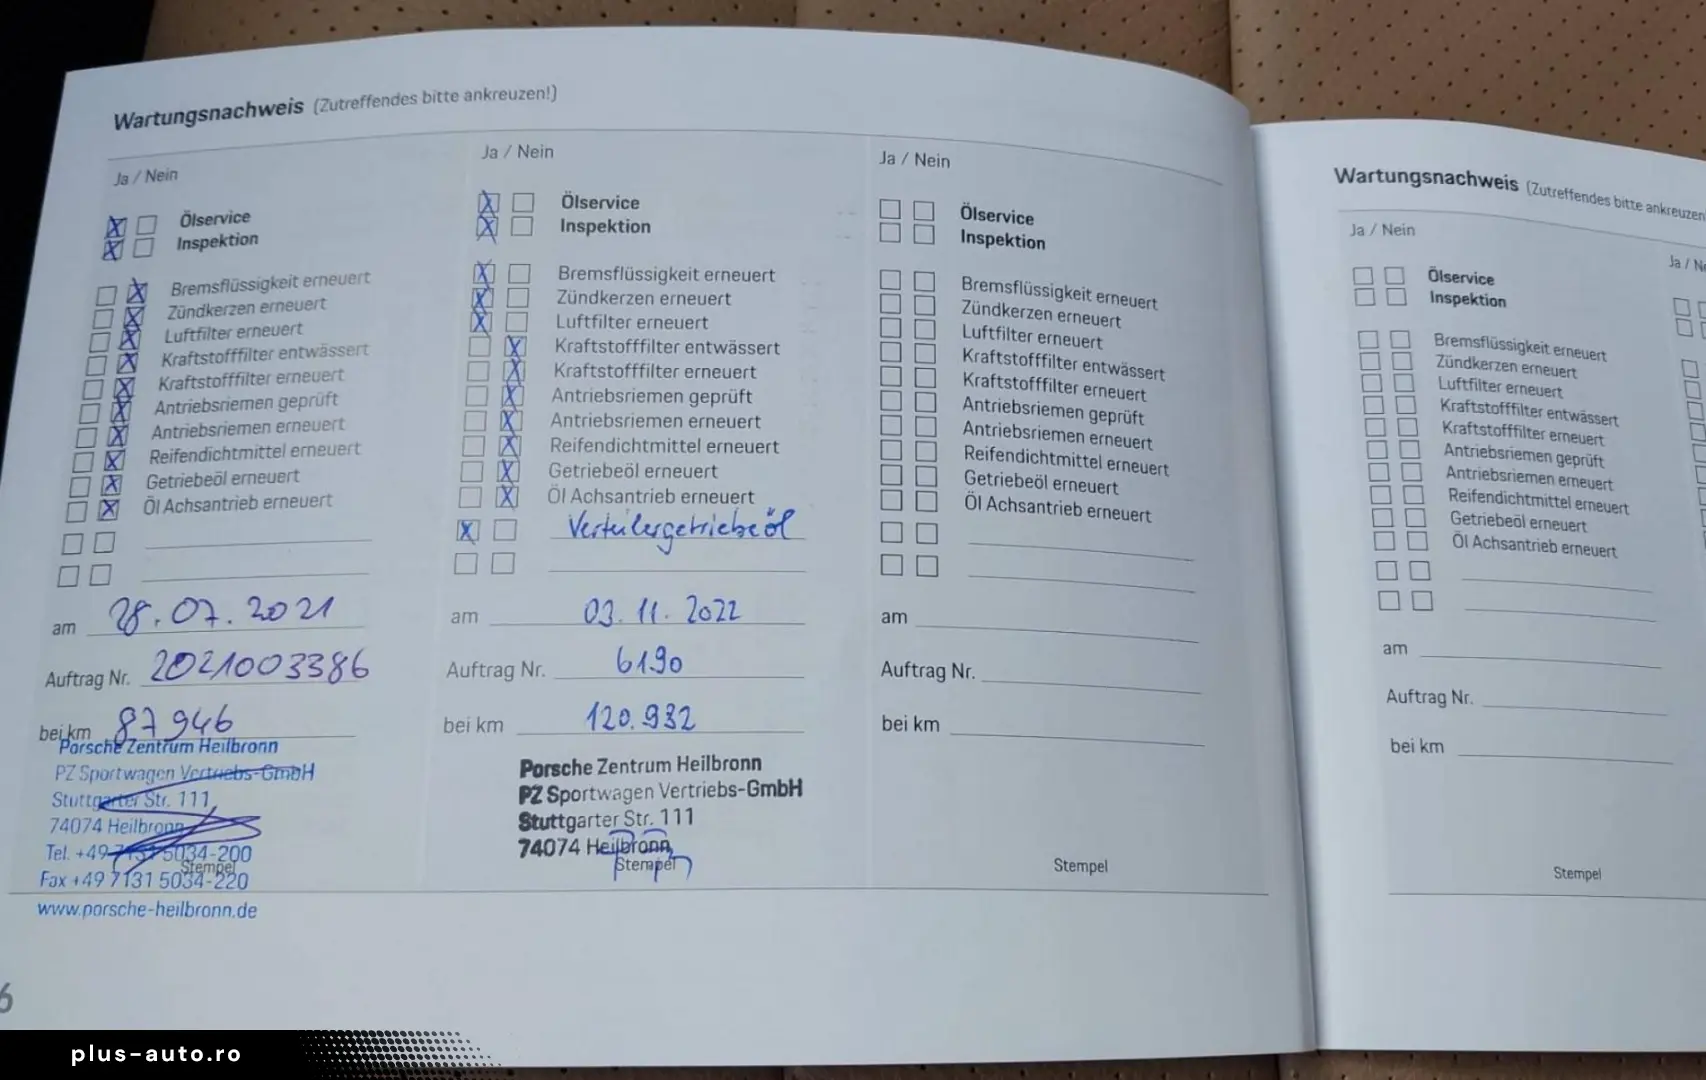 Wartungsnachweis (Zutreffendes bitte ankreuzen!)
Ja / Nein
Ölservice
Inspektion
Bremsflüssigkeit erneuert
Zündkerzen erneuert
Luftfilter erneuert
Kraftstofffilter entwässert
Kraftstofffilter erneuert
Antriebsriemen geprüft
Antriebsriemen erneuert
Reifendichtmittel erneuert
Getriebeöl erneuert
Öl Achsantrieb erneuert
am 28.07.2021
Auftrag Nr. 2021003386
bei km 87946
Porsche Zentrum Heilbronn
PZ Sportwagen Vertriebs-GmbH
Stuttgarter Str. 111
74074 Heilbronn
Tel. +49 7131 5034-200
Stempel
Fax +49 7131 5034-220
www.porsche-heilbronn.de
Ja / Nein
Ölservice
Inspektion
Bremsflüssigkeit erneuert
Zündkerzen erneuert
Luftfilter erneuert
Kraftstofffilter entwässert
Kraftstofffilter erneuert
Antriebsriemen geprüft
Antriebsriemen erneuert
Reifendichtmittel erneuert
Getriebeöl erneuert
Öl Achsantrieb erneuert
Verteilergetriebeöl
am 03.11.2022
Auftrag Nr. 6190
bei km 120.932
Porsche Zentrum Heilbronn
PZ Sportwagen Vertriebs-GmbH
Stuttgarter Str. 111
74074 Heilbronn
Stempel
Ja / Nein
Ölservice
Inspektion
Bremsflüssigkeit erneuert
Zündkerzen erneuert
Luftfilter erneuert
Kraftstofffilter entwässert
Kraftstofffilter erneuert
Antriebsriemen geprüft
Antriebsriemen erneuert
Reifendichtmittel erneuert
Getriebeöl erneuert
Öl Achsantrieb erneuert
am
Auftrag Nr.
bei km
Stempel
6
Wartungsnachweis (Zutreffendes bitte ankreuzen
Ja / Nein
Ölservice
Inspektion
Bremsflüssigkeit erneuert
Zündkerzen erneuert
Luftfilter erneuert
Kraftstofffilter entwässert
Kraftstofffilter erneuert
Antriebsriemen geprüft
Antriebsriemen erneuert
Reifendichtmittel erneuert
Getriebeöl erneuert
Öl Achsantrieb erneuert
am
Auftrag Nr.
bei km
Stempel
Ja / Ne
plus-auto.ro